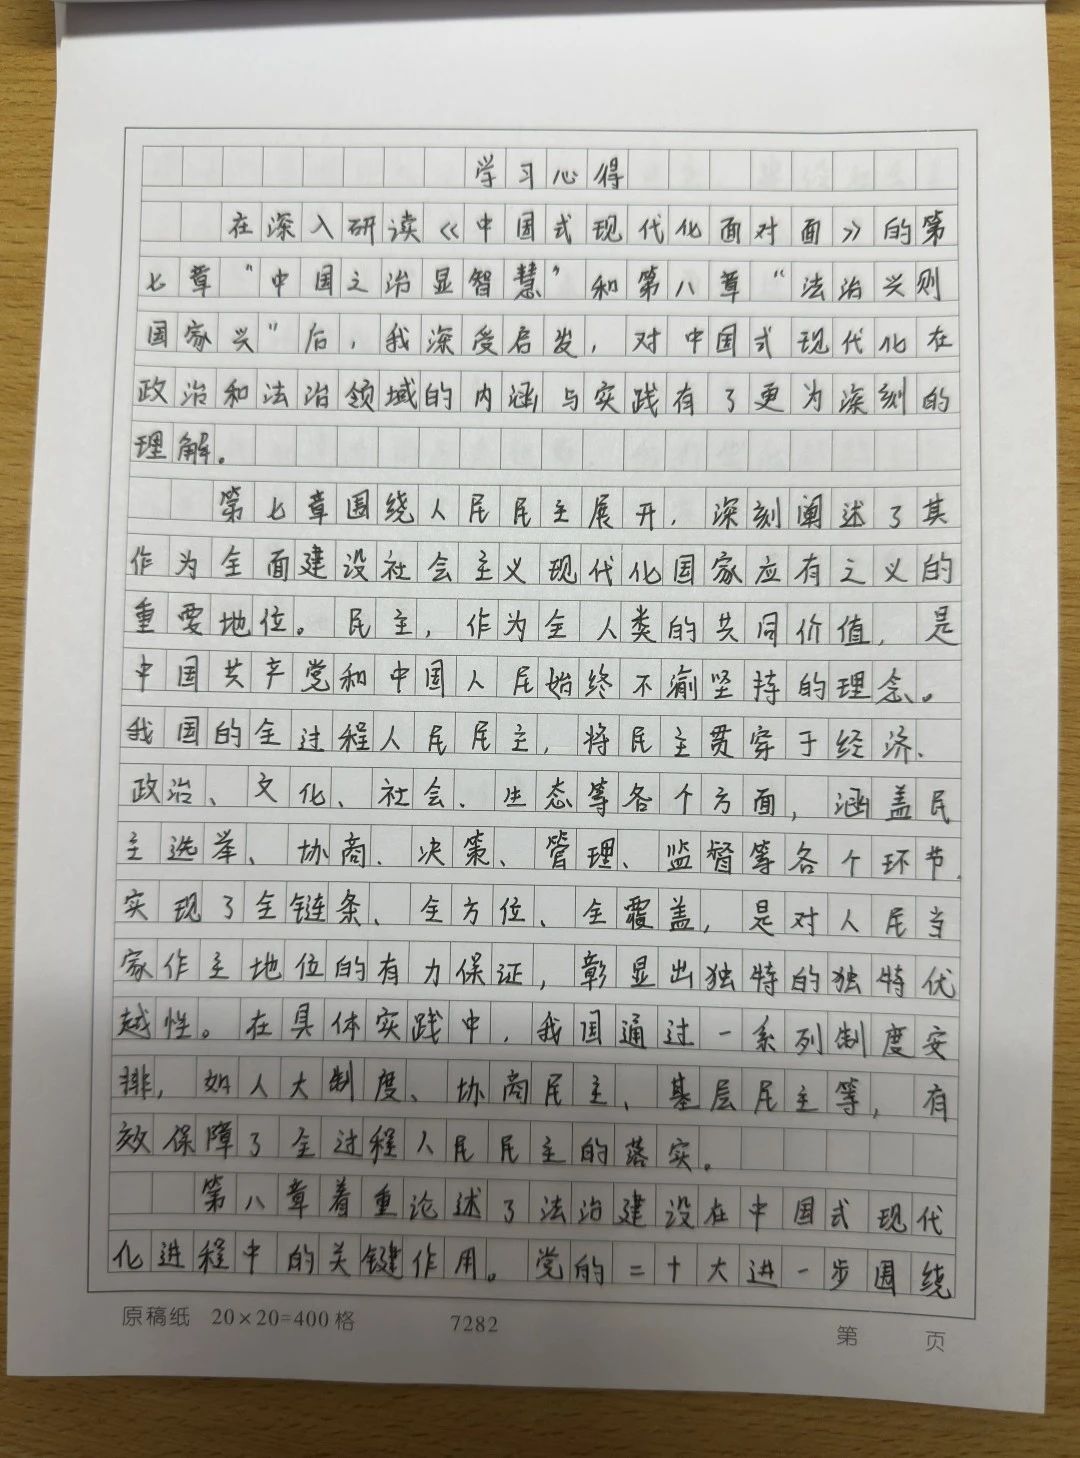 学习心得
在深入研读《中国式现代化面对面》的第
七章“中国之治显智慧”和第八章“法治兴则
国家兴”后，我深受启发，对中国式现代化在
政治和法治领域的内涵与实践有了更为深刻的
理解。
第七章围绕人民民主展开，深刻阐述了其
作为全面建设社会主义现代化国家应有之义的
重要地位。民主，作为全人类的共同价值，是
中国共产党和中国人民始终不渝坚持的理念。
我国的全过程人民民主，将民主贯穿于经济、
政治、文化、社会、生态等各个方面，涵盖民
主选举、协商、决策、管理、监督等各个环节，
实现了全链条、全方位、全覆盖，是对人民当
家作主地位的有力保证，彰显出独特的独特优
越性。在具体实践中，我国通过一系列制度安
排，如人大制度、协商民主、基层民主等，有
效保障了全过程人民民主的落实。
第八章着重论述了法治建设在中国式现代
化进程中的关键作用。党的二十大进一步围绕
原稿纸 20×20=400格 7282 第 页